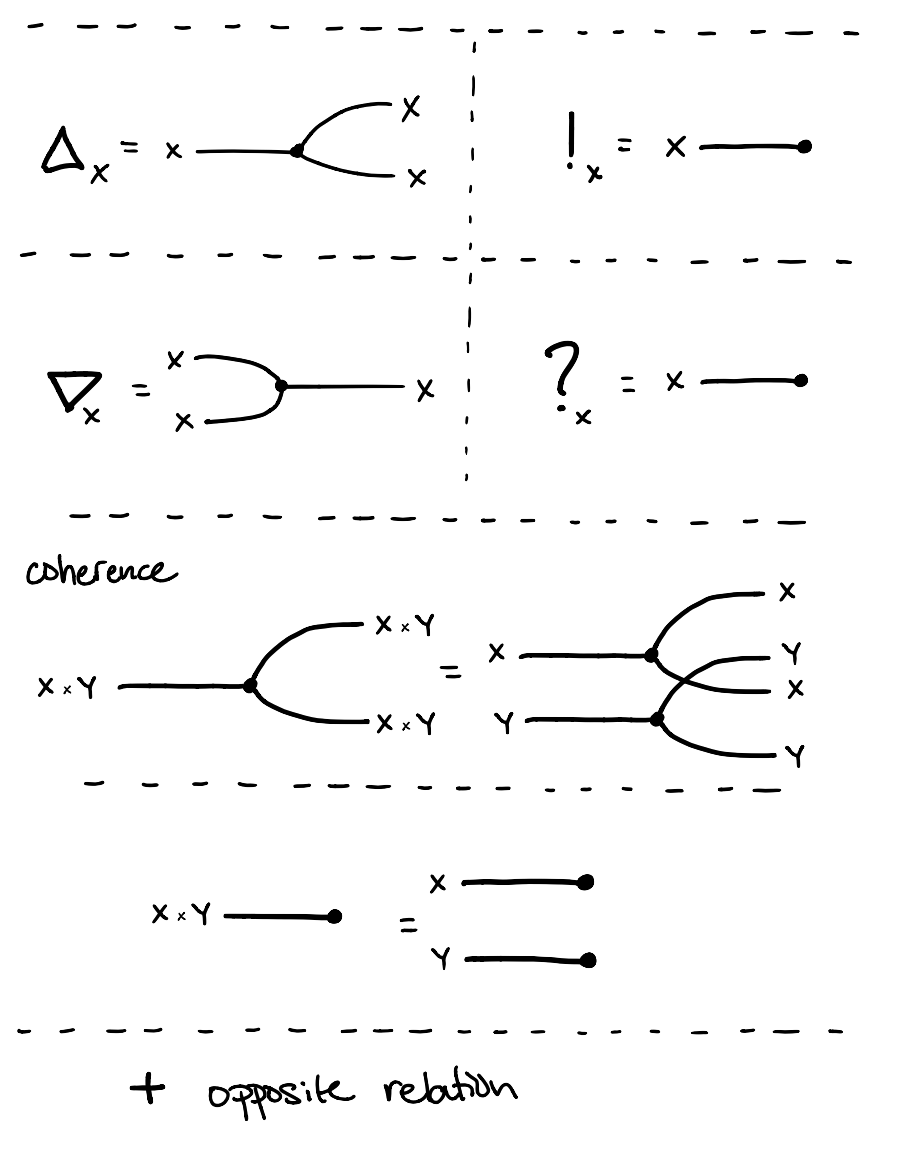 Δ_x = x X x
!_x = X
∇_x = X X X
?_x = X
coherence
X × Y X × Y X × Y = X Y X Y X Y
X × Y = X Y
+ opposite relation